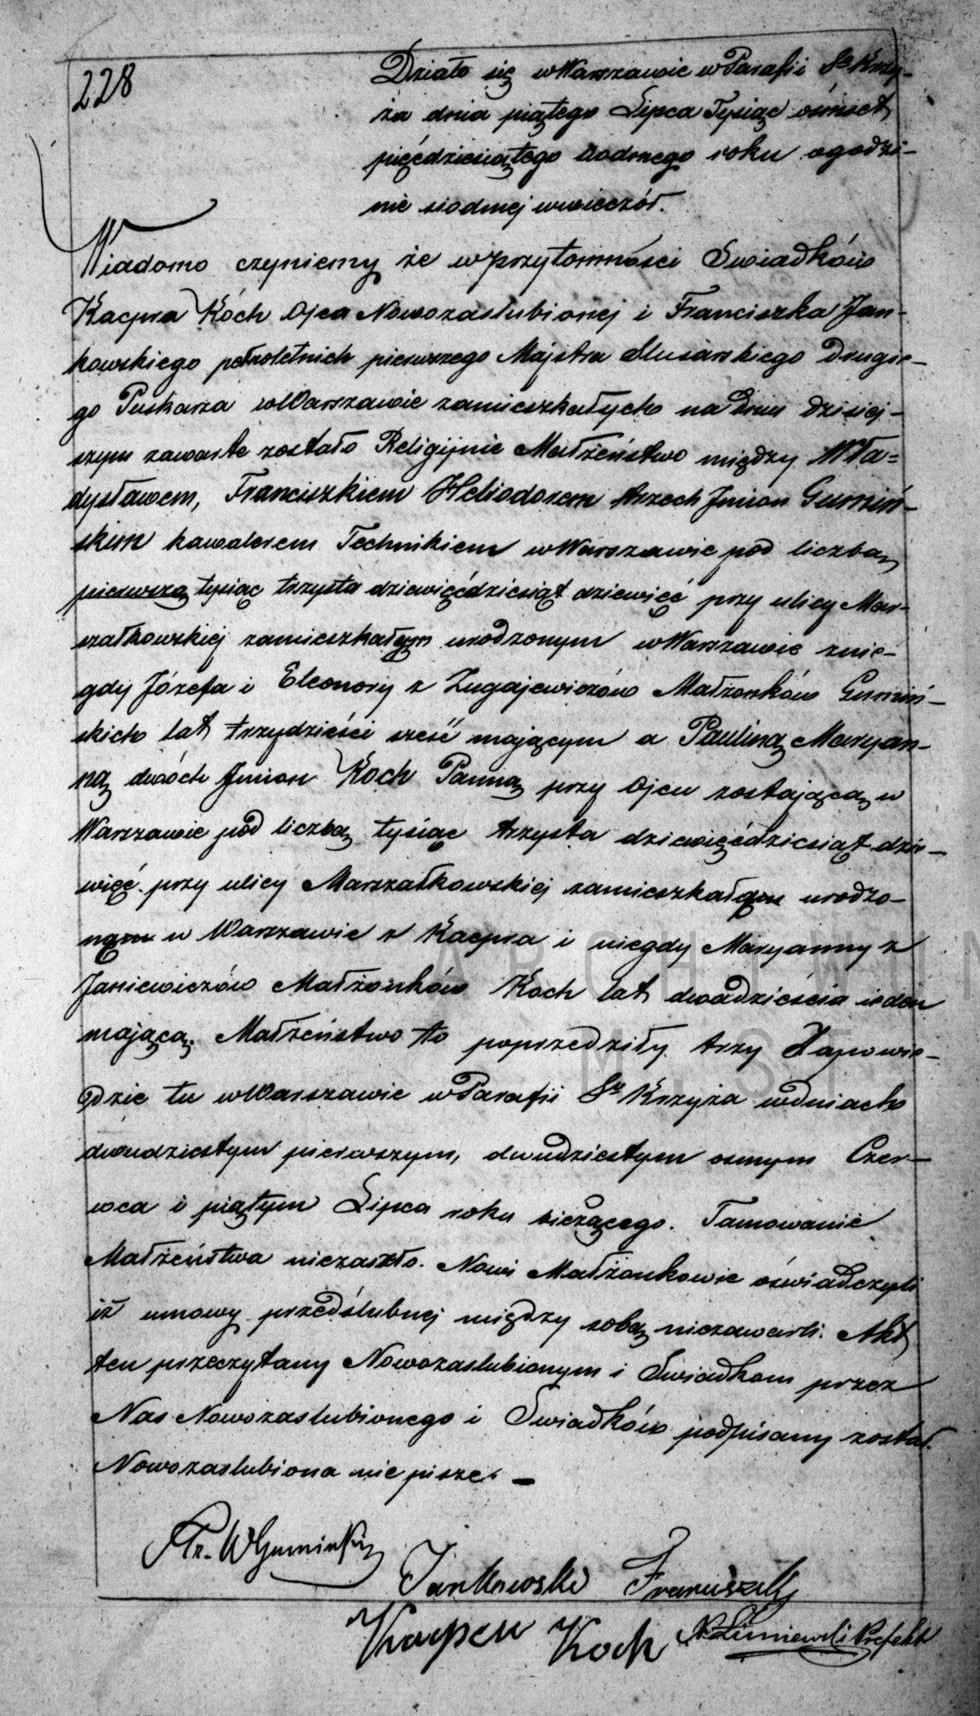 228
Działo się w Warszawie w Parafii Sgo Krzy-
ża dnia piątego Lipca Tysiąc ośmset
pięćdziesiątego siódmego roku o godzi-
nie siodmej wwieczór.
Wiadomo czyniemy że w przytomności Swiadków
Kacpra Koch Ojca Nowozaslubionej i Franciszka Jan-
kowskiego pełnoletnich pierwszego Majstra slusarskiego drugie-
go Puskarza w Warszawie zamieszkałych na dniu dzisiej-
szym zawarte zostało Religijnie Małżeństwo między Wła=
dysławem, Franciszkiem Heliodorem trzech Jmion Gumiń-
skim kawalerem Technikiem w Warszawie pod liczbą
pierwszą tysiąc trzysta dziewięćdziesiąt dziewięć przy ulicy Mar-
szałkowskiej zamieszkałym urodzonym w Warszawie z nie-
gdy Józefa i Eleonory z Zugajewiczów Małżonków Gumiń-
skich lat trzydzieści sześć mającym a Pauliną Maryan-
ną dwóch Jmion Koch Panną przy Ojcu zostającą w
Warszawie pod liczbą tysiąc trzysta dziewięćdziesiąt dzie-
więć przy ulicy Marszałkowskiej zamieszkałą urodzo-
ną w Warszawie z Kacpra i niegdy Maryanny z
Janiewiczów Małżonków Koch lat dwadzieścia ieden
mającą. Małżeństwo to poprzedziły trzy Zapowie-
dzie tu w Warszawie w Parafii Sgo Krzyża w dniach
dwudziestym pierwszym, dwudziestym osmym Czer-
wca i piątym Lipca roku bieżącego. Tamowanie
Małżeństwa niezaszło. Nowi Małżonkowie oświadczyli
iż umowy przedślubnej między sobą niezawarli. Akt
ten przeczytany Nowozaslubionym i Swiadkom przez
Nas Nowozaslubionego i Swiadków podpisany został.
Nowozaslubiona nie pisze. –
Fr. W Gumiński
Jankowski Franciszek
Kacper Koch